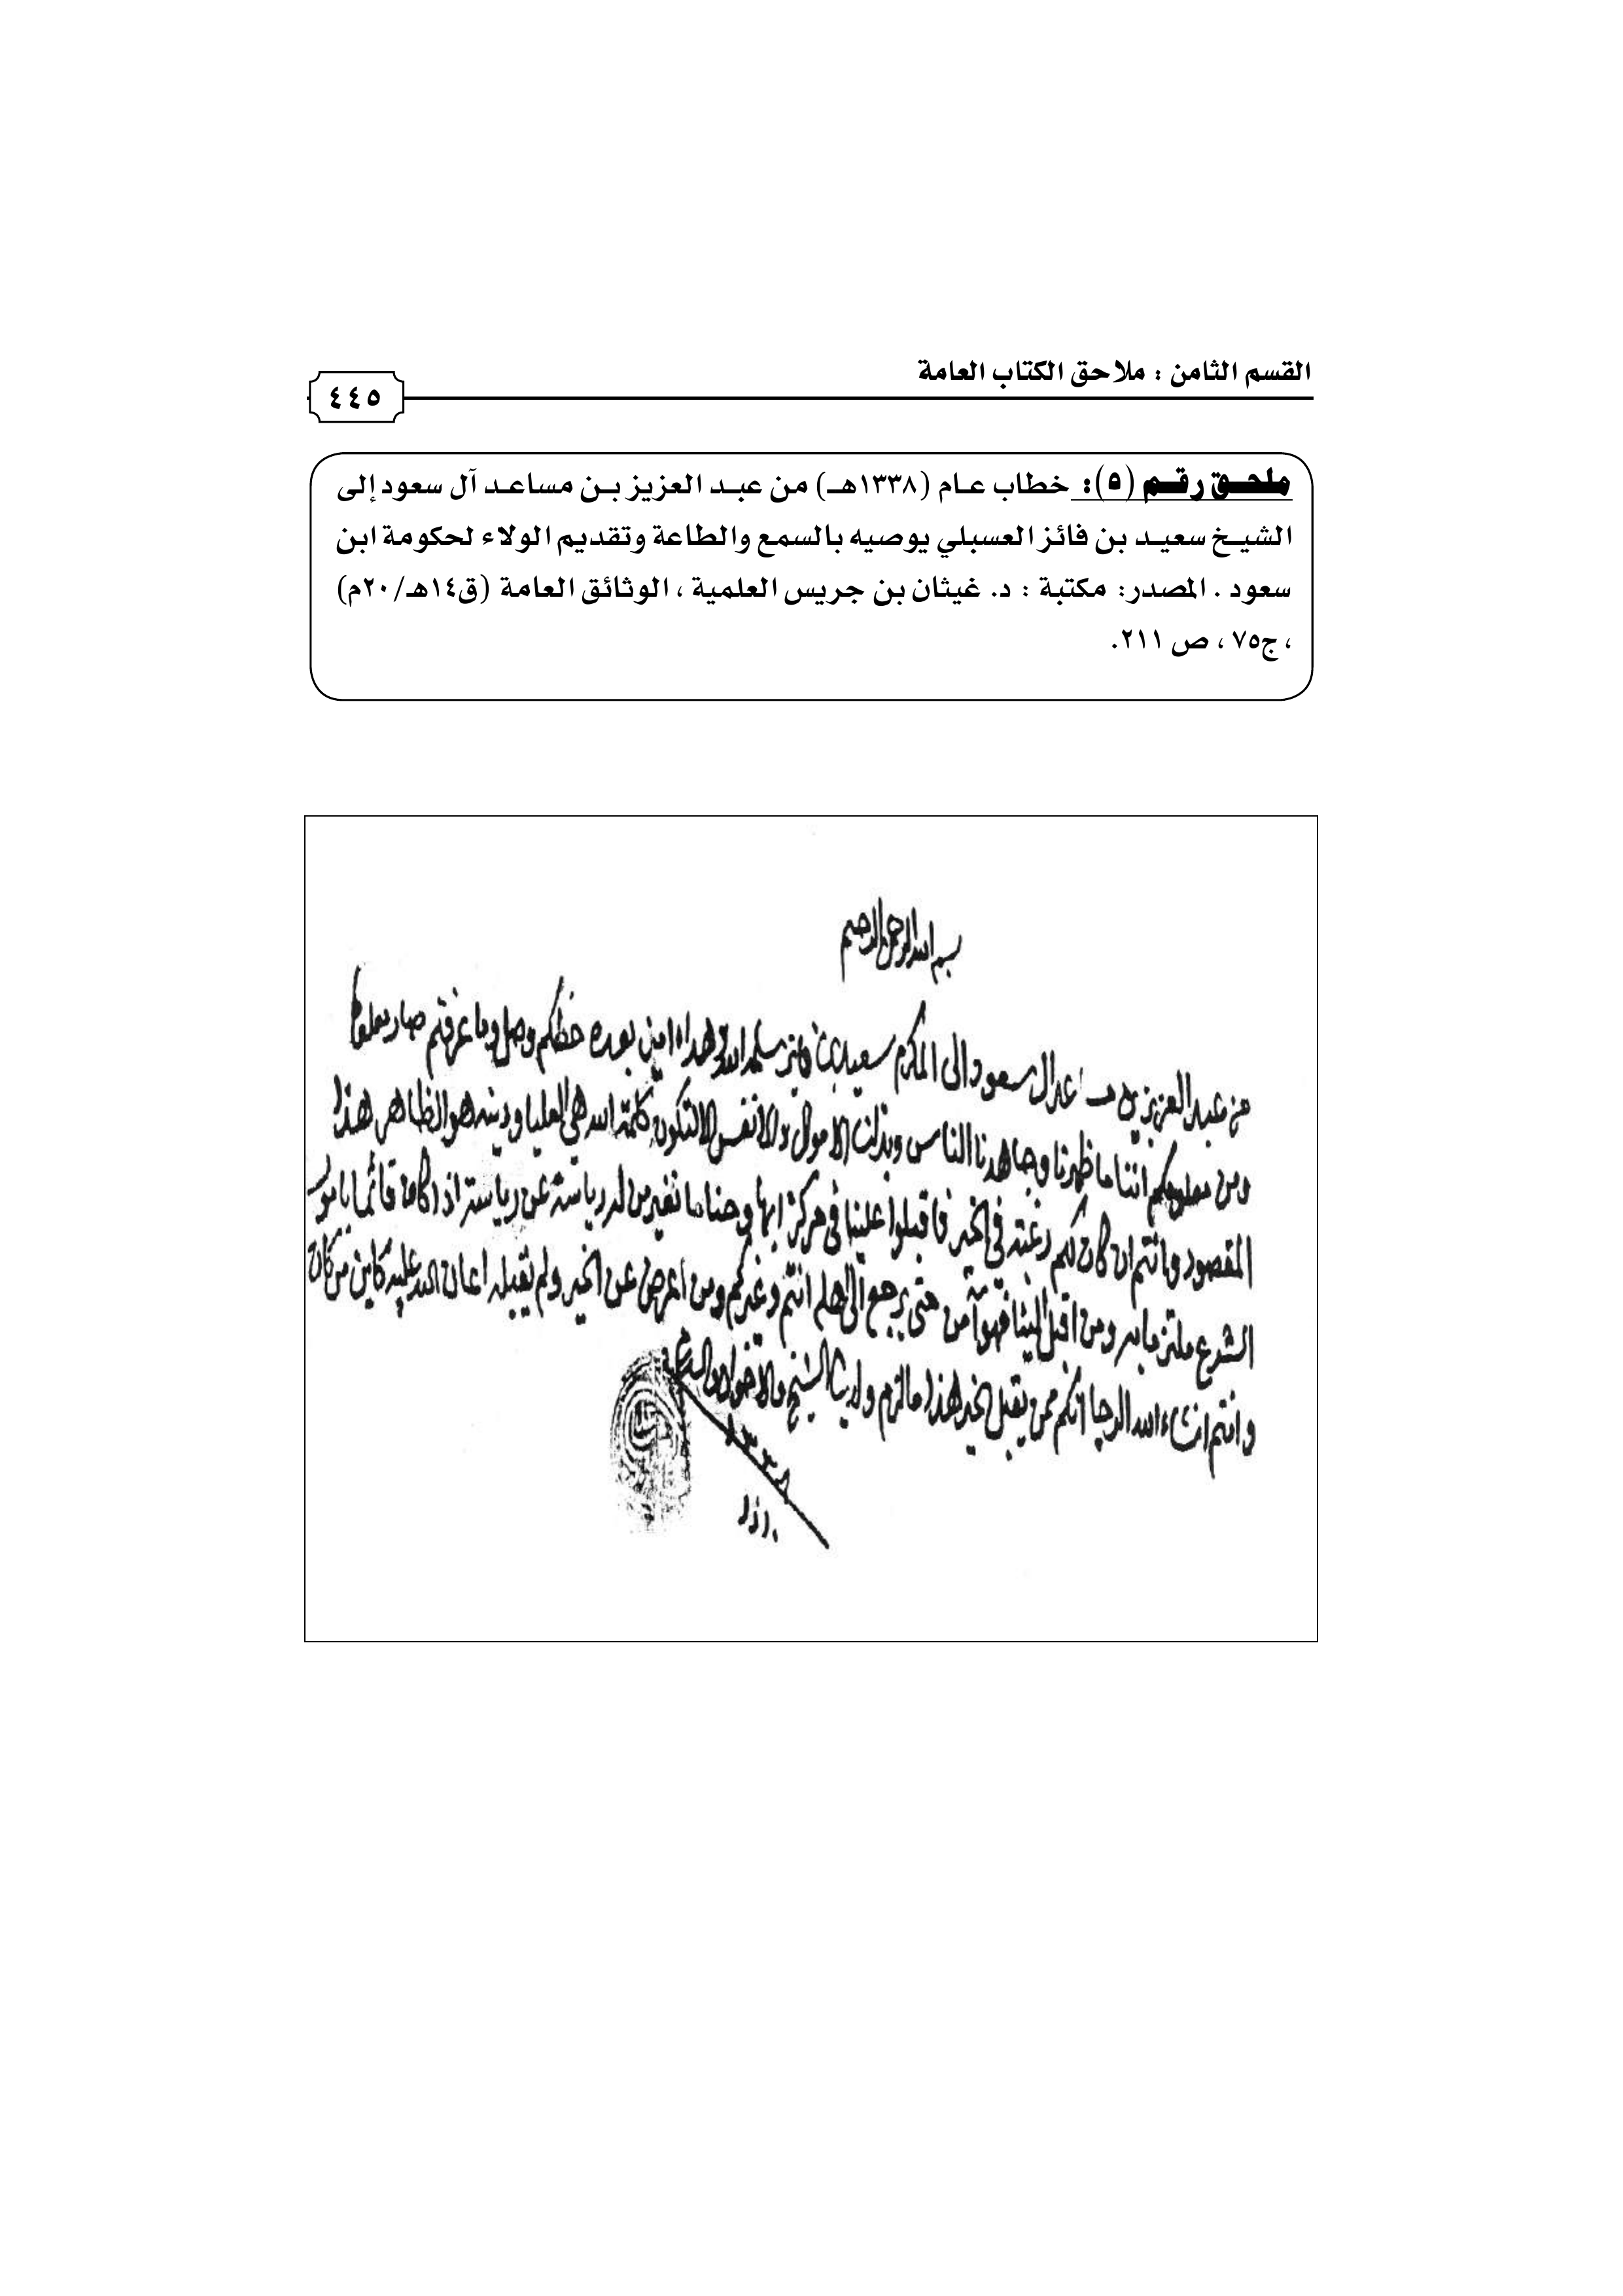 القسم الثامن : ملاحق الكتاب العامة
٤٤٥
ملحق رقم (٥): خطاب عام (١٣٣٨هـ) من عبد العزيز بن مساعد آل سعود إلى
الشيخ سعيد بن فائز العسبلي يوصيه بالسمع والطاعة وتقديم الولاء لحكومة ابن
سعود . المصدر: مكتبة : د. غيثان بن جريس العلمية ، الوثائق العامة (ق١٤هـ/٢٠م)
، ج٧٥ ، ص ٢١١.
بسم الله الرحمن الرحيم
من عبد العزيز بن مساعد ال سعود الى المكرم سعيد بن فايز سلمه الله وهداه امين بعده خطكم وصل وما عرفتم صار معلوم
ومن معلومكم اننا ما ظهرنا وجاهدنا الناس وبذلنا الاموال والانفس الا لتكون كلمة الله هي العليا ودينه هو الظاهر هذا
المقصود وانتم ان كان لكم رغبة في الخير فاقبلوا علينا في مركز ابها وحنا ما نغير من له رياسة عن رياسته اذا كان قائما بامور
الشرع ملتزما به ومن اقبل الينا فهو آمن حتى يرجع الى اهله انتم وغيركم ومن اعرض عن الخير ولم يقبله اعان الله عليه كاين من كان
وانتم انشاء الله الرجا انكم ممن يقبل الخير هذا ما لزم ولدينا الشيخ والاخوان والسلام
١٣٣٨